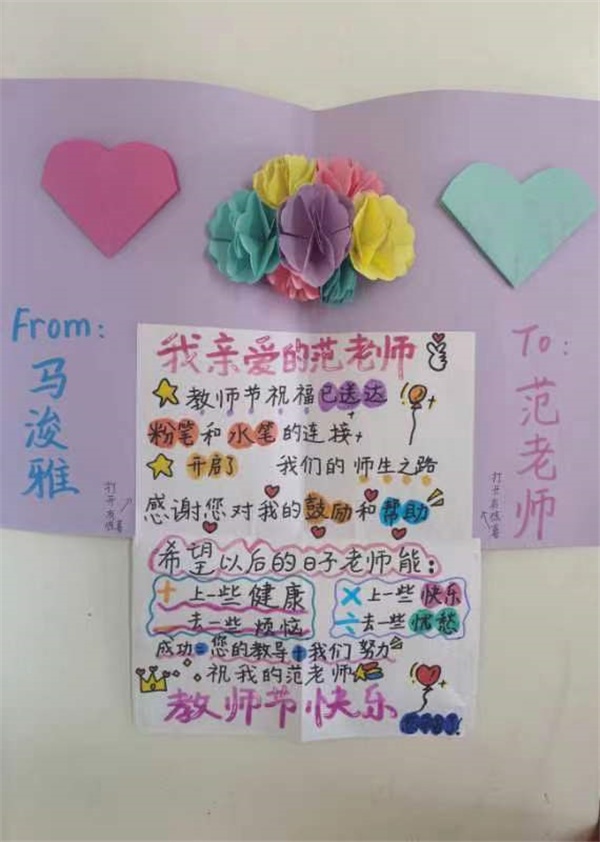 From:
马浚雅
打开有惊喜
To:
范老师
打开有惊喜
我亲爱的范老师
教师节祝福已送达
粉笔和水笔的连接
开启了 我们的师生之路
感谢您对我的鼓励和帮助
希望以后的日子老师能:
+ 上一些健康 × 上一些快乐
- 去一些烦恼 ÷ 去一些忧愁
成功=您的教导+我们努力
祝我的范老师
教师节快乐